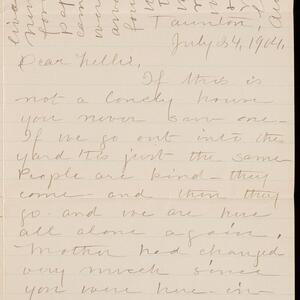 Taunton,
July 24, 1904.
Dear Nellie,
If this is
not a lonely house
you never saw one—
If we go out into the
yard tis just the same
People are kind—they
come—and then they
go—and we are here
all alone again.
Mother had changed
very much since
you were here—in